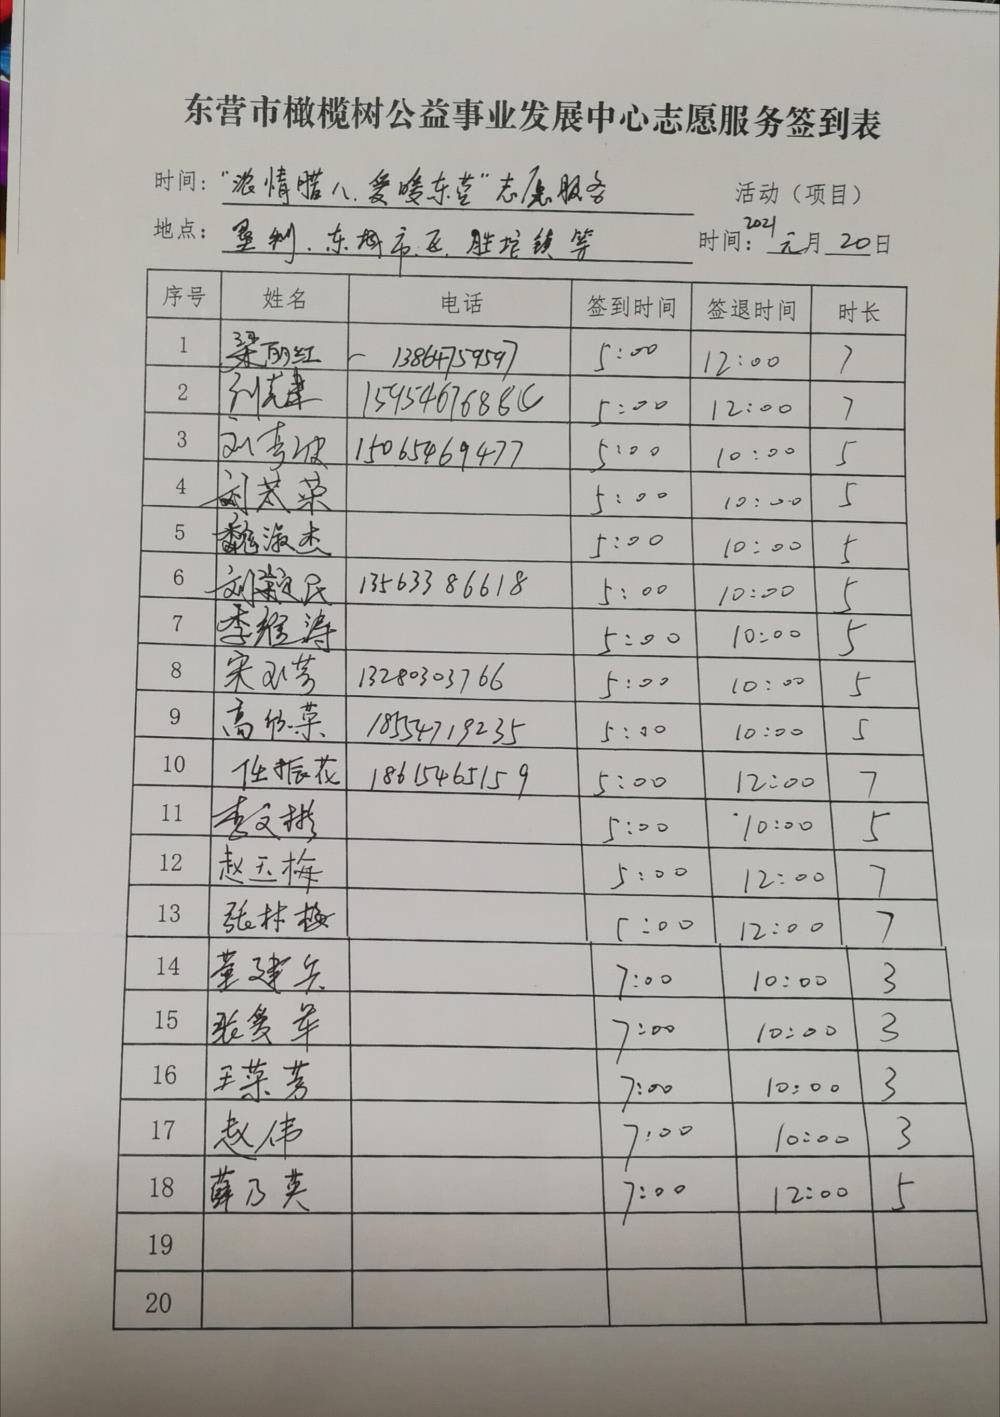 东营市橄榄树公益事业发展中心志愿服务签到表
时间："浓情腊八、爱暖东营"志愿服务 活动（项目）
地点：垦利、东城市区、胜坨镇等 时间：2021元月20日
序号 姓名 电话 签到时间 签退时间 时长
1 梁丽红 13864759597 5:00 12:00 7
2 刘克建 5:00 12:00 7
3 刘 15065469477 5:00 10:00 5
4 刘 荣 5:00 10:00 5
5 魏淑杰 5:00 10:00 5
6 刘 民 13563386618 5:00 10:00 5
7 李 涛 5:00 10:00 5
8 宋 芳 13280303766 5:00 10:00 5
9 高欣荣 18554719235 5:00 10:00 5
10 任振花 18615465159 5:00 12:00 7
11 李文彬 5:00 10:00 5
12 赵玉梅 5:00 12:00 7
13 张林梅 5:00 12:00 7
14 董建兵 7:00 10:00 3
15 张爱军 7:00 10:00 3
16 王荣芳 7:00 10:00 3
17 赵伟 7:00 10:00 3
18 薛乃英 7:00 12:00 5
19
20